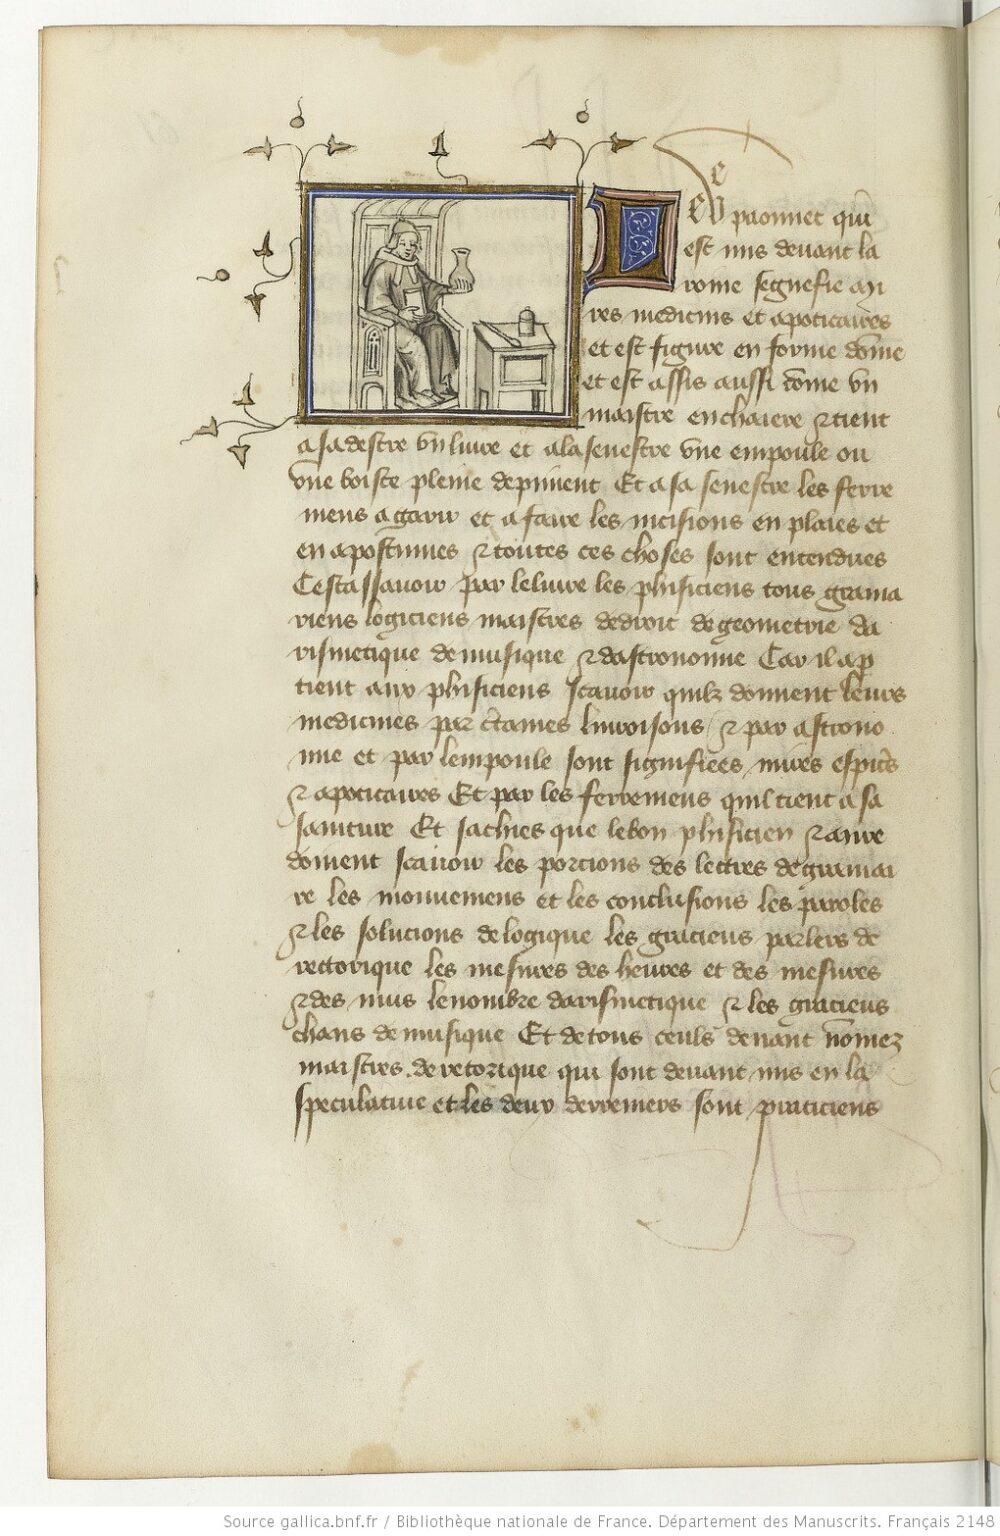 Le paonnet qui
est mis devant la
roine segnefie mi
res medicins et apoticaires
et est figure en forme dōme
et est assis aussi cōme vn
maistre enchaiere ⁊ tient
a sa destre vn liure et a la senestre vne empoule ou
vne boiste pleine depiment Et a sa senestre les ferre
mens a garir et a faire les incisions en plaies et
en apostumes ⁊ toutes ces choses sont entendues
Cest assauoir par le liure les phisiciens tous grama
riens logiciens maistres de droit de geometrie da
rismetique de musique ⁊ dastronomie Car il ap
tient aux phisiciens scauoir quilz donnent leurs
medicines par c̄taines / ⁊ par astrono
mie et par lempoule sont signifiees mires espiciers
⁊ apoticaires Et par les ferremens quil tient a sa
sainture Et sachies que le bon phisicien ⁊ mire
doiuent scauoir les porcions des lectres de gramai
re les mouuemens et les conclusions les paroles
⁊ les solucions de logique les gracieus parlers de
rectorique les mesures des heures et des mesures
⁊ des le nombre darismetique ⁊ les gracieus
chans de musique Et de tous ceuls deuant nōmez
maistres de retorique qui sont deuant mis en la
speculatiue et les deux derreniers sont praticiens
Source gallica.bnf.fr / Bibliothèque nationale de France. Département des Manuscrits. Français 2148